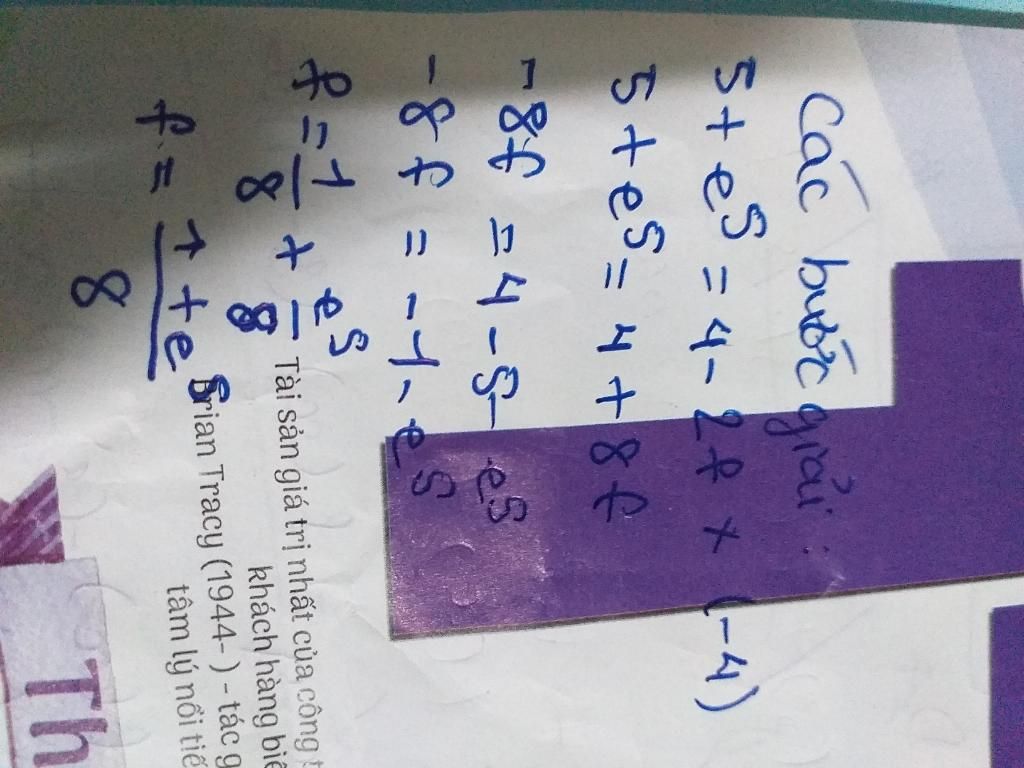 Các bước giải
5 + e⁵ = 4 - 2f × (-4)
5 + e⁵ = 4 + 8f
-8f = 4 - 5 - e⁵
-8f = -1 - e⁵
f = 1/8 + e⁵/8
f = (1 + e⁵)/8
Tài sản giá trị nhất của công t
khách hàng biế
Brian Tracy (1944- ) - tác g
tâm lý nổi tiế
Th